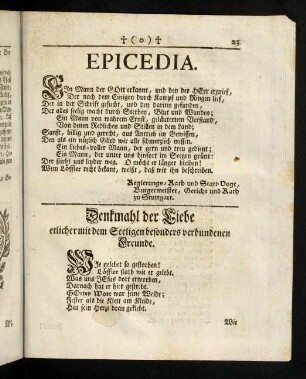 ✝ ( o ) ✝ 23
EPICEDIA.
EIn Mann der GOtt erkannt, und den der HErr ergriff,
Der nach dem Einigen durch Kampf und Ringen lief,
Der in der Schrift gesucht, und den darinn gefunden,
Der alles seelig macht durch Sterben, Blut und Wunden;
Ein Mann von wahrem Ernst, geläutertem Verstand,
Von denen Redlichen und Stillen in dem Land;
Sanft, billig und gerecht, aus Antrieb im Gewissen,
Den als ein nützlich Glied wir alle schmerzlich missen.
Ein Liebes-voller Mann, der gern und treu gedient;
Ein Mann, der unter uns hinfort im Seegen grünt:
Der stirbt uns leyder weg. O möcht er länger bleiben!
Wem Löffler recht bekant, weißt, daß wir ihn beschreiben.
Regierungs-Rath und Statt-Vogt,
Burgermeister, Gericht und Rath
zu Stuttgart.
Denkmahl der Liebe
etlicher mit dem Seeligen besonders verbundenen
Freunde.
WIe gelebet so gestorben!
Löffler starb wie er gelebt.
Was uns JEsus dort erworben,
Darnach hat er hier gestrebt.
GOttes Wort war seine Weide;
Fester als die Klett am Kleide,
Hat sein Herz dran geklebt.
Wie